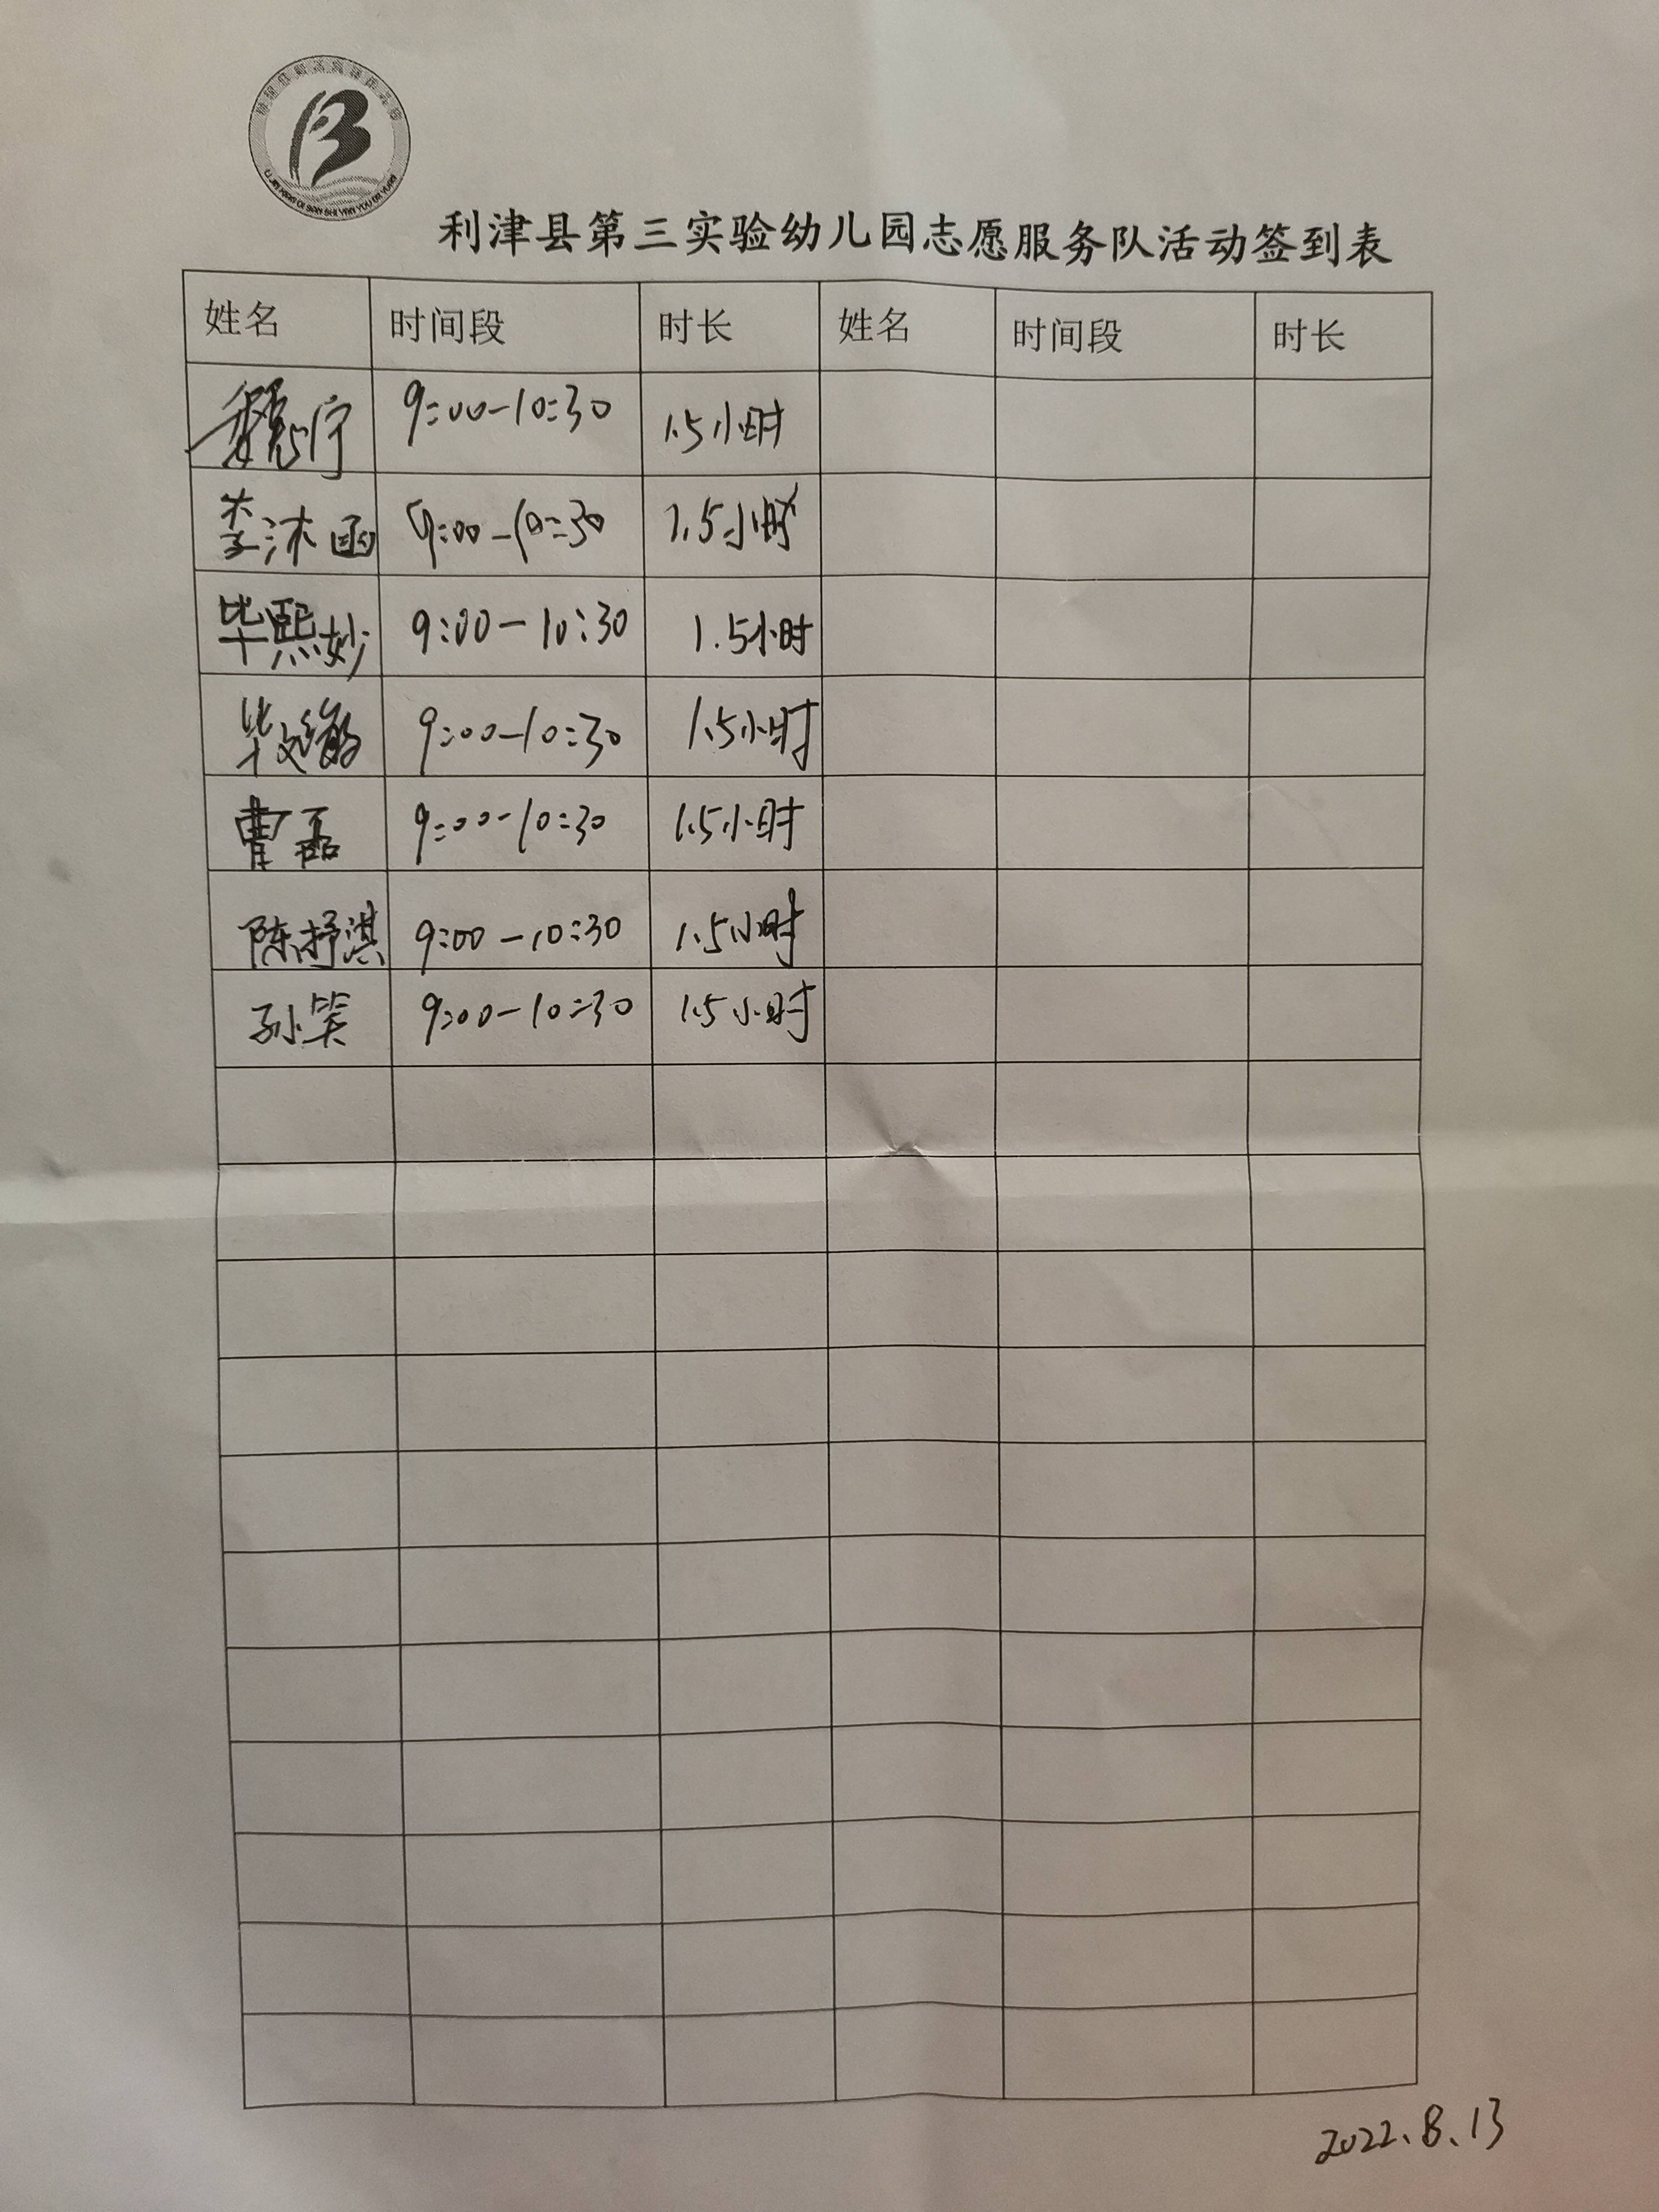 利津县第三实验幼儿园志愿服务队活动签到表
姓名 时间段 时长 姓名 时间段 时长
魏宁 9:00-10:30 1.5小时
李沐函 9:00-10:30 1.5小时
毕熙妙 9:00-10:30 1.5小时
毕 9:00-10:30 1.5小时
曹磊 9:00-10:30 1.5小时
陈抒淇 9:00-10:30 1.5小时
孙笑 9:00-10:30 1.5小时
2022.8.13